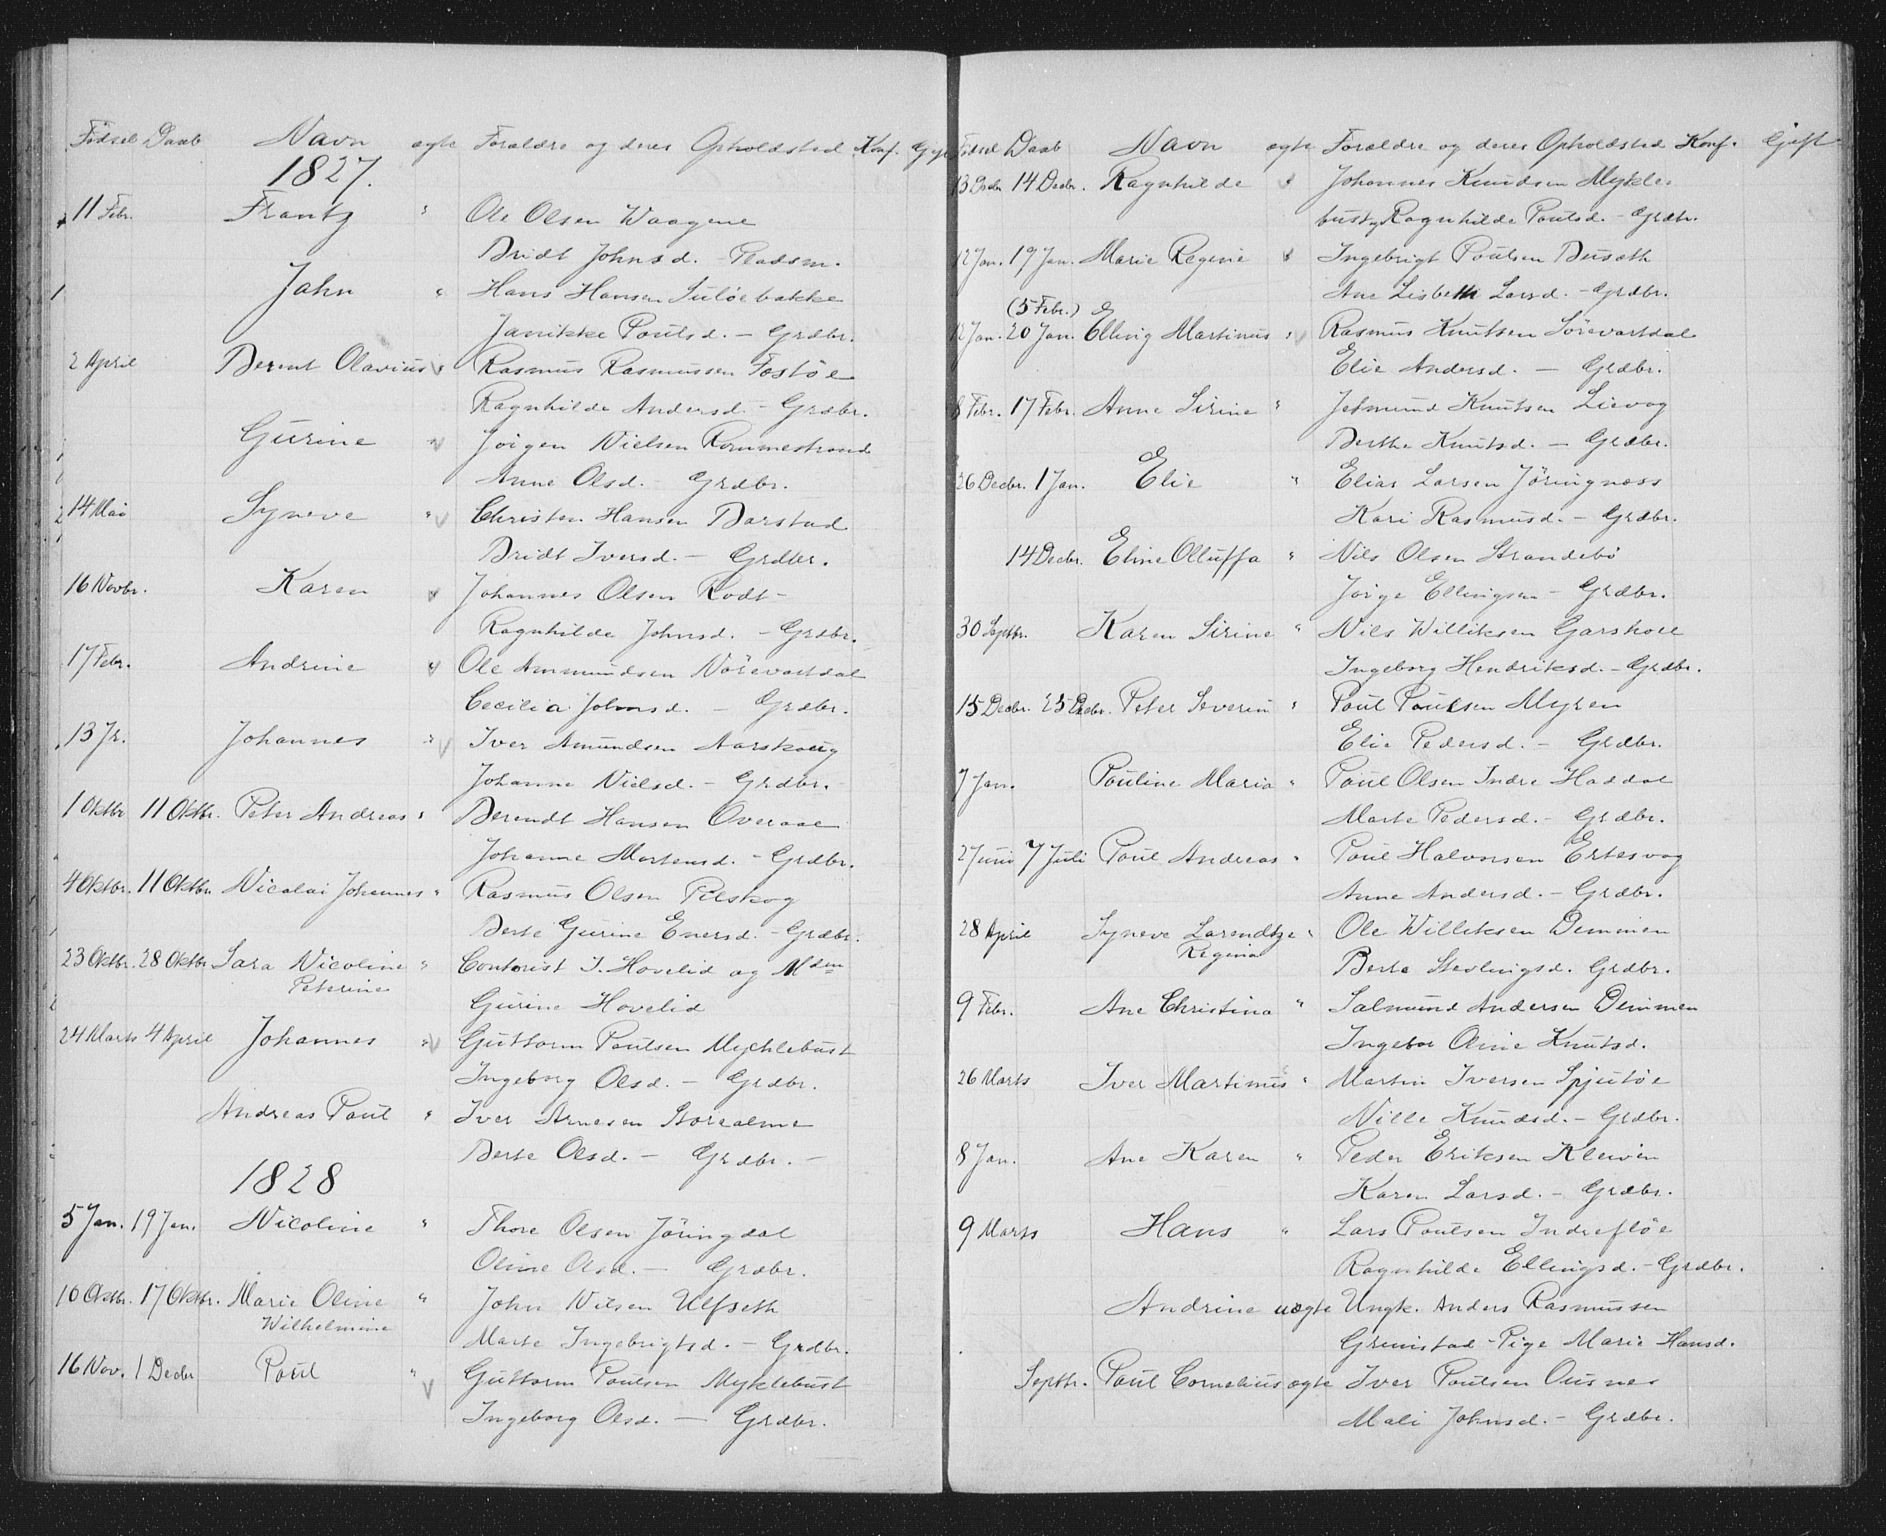 Fødsel Daab Navn ægte Forældre og deres Opholdsted Konf.
1827.
11 Febr. Frantz " Ole Olsen Waagene
Bridt Johnsd. - Pladsm.
Jahn " Hans Hansen Suløebakke
Janikke Poulsd. - Grdbr.
2 April Berent Olavius " Rasmus Rasmussen Fostøe
Ragnhilde Andersd. - Grdbr.
Gurine " Jørgen Nielsen Rommestrand
Anne Olsd. - Grdbr.
14 Mai Syneve " Christen Hansen Barstad
Bridt Iversd. - Grdbr.
16 Novbr. Karen " Johannes Olsen Kodt-
Ragnhilde Johnsd. - Grdbr.
17 Febr. Andrine " Ole Ammundsen Nörevartdal
Cecilia Johnsd. - Grdbr.
13 Johannes " Iver Amundsen Aarskoug
Johanne Nielsd. - Grdbr.
1 Oktbr 11 Oktbr. Peter Andreas " Berendt Hansen Overaae
Johanne Mortensd. - Grdbr.
4 Oktbr. 11 Oktbr. Nicolai Johannes " Rasmus Olsen Pilskog
Berte Gurine Enersd. - Grdbr.
23 Oktbr. 28 Oktbr Sara Nicoline " Contorist J. Hovelid og Mdm
Peterine
Gurine Hovelid
24 Marts 4 April Johannes " Guttorm Poulsen Mychlebust
Ingeborg Olsd. - Grdbr.
Andreas Poul " Iver Arnesen Storealme
Berte Olsd. - Grdbr. -
1828
5 Jan. 19 Jan. Nicoline " Thore Olsen Jöringdal
Oline Olsd. - Grdbr.
10 Oktbr. 17 Oktbr. Marie Oline " John Nilsen Ulfseth
Wilhelmine
Marte Ingebrigtsd. - Grdbr.
16 Nov. 1 Decbr Poul " Guttorm Poulsen Myklebust
Ingeborg Olsd. - Grdbr.
Fødsel Daab Navn ægte Forældre og deres Opholdsted Konf. Gift
13 Decbr 14 Decbr. Ragnhilde " Johannes Knudsen Mykle-
bust, Ragnhilde Poulsd. - Grdbr.
12 Jan. 19 Jan. Marie Regine " Ingebrigt Poulsen Buseth
Ane Lisbeth Larsd. - Grdbr.
(5 Febr.)
12 Jan. 20 Jan. Elling Martinus " Rasmus Knutsen Sörevartdal
Elie Andersd. - Grdbr.
8 Febr. 17 Febr. Anne Sirine " Jetmund Knutsen Lievog
Berthe Knutsd. - Grdbr.
26 Decbr. 1 Jan. Elie " Elias Larsen Jöringnæss
Kari Rasmusd. - Grdbr.
14 Decbr. Eline Olluffa " Nils Olsen Strandebö
Jörge Ellingsen - Grdbr.
30 Septbr. Karen Sirine " Nils Williksen Garshole
Ingeborg Hendriksd. - Grdbr.
15 Decbr. 25 Decbr. Peter Severin " Poul Poulsen Myren
Elie Pedersd. - Grdbr.
7 Jan. Pouline Maria " Poul Olsen Indre Haddal
Marte Pedersd. - Grdbr.
2 Juni 7 Juli Poul Andreas " Poul Halvorsen Ertesvog
Anne Andersd. - Grdbr.
28 April Syneve Larendtze " Ole Williksen Demmen
Regina
Berte Stevlingsd. Grdbr.
9 Febr. Ane Christina " Salmund Andersen Demmen
Ingebor Oline Knutsd.
26 Marts Iver Martinus " Martin Iversen Spjutøe
Nille Knudsd. - Grdbr.
8 Jan. Ane Karen " Peder Eriksen Kleiven
Karen Larsd. - Grdbr.
9 Marts Hans " Lars Poulsen Indrefløe
Ragnhilde Ellingsd. - Grdbr.
Andrine uægte Ungk. Anders Rasmussen
Grimstad - Pige Marie Hansd.
Septbr. Poul Cornelius ægte Iver Poulsen Ousnes
Mali Johnsd. - Grdbr.